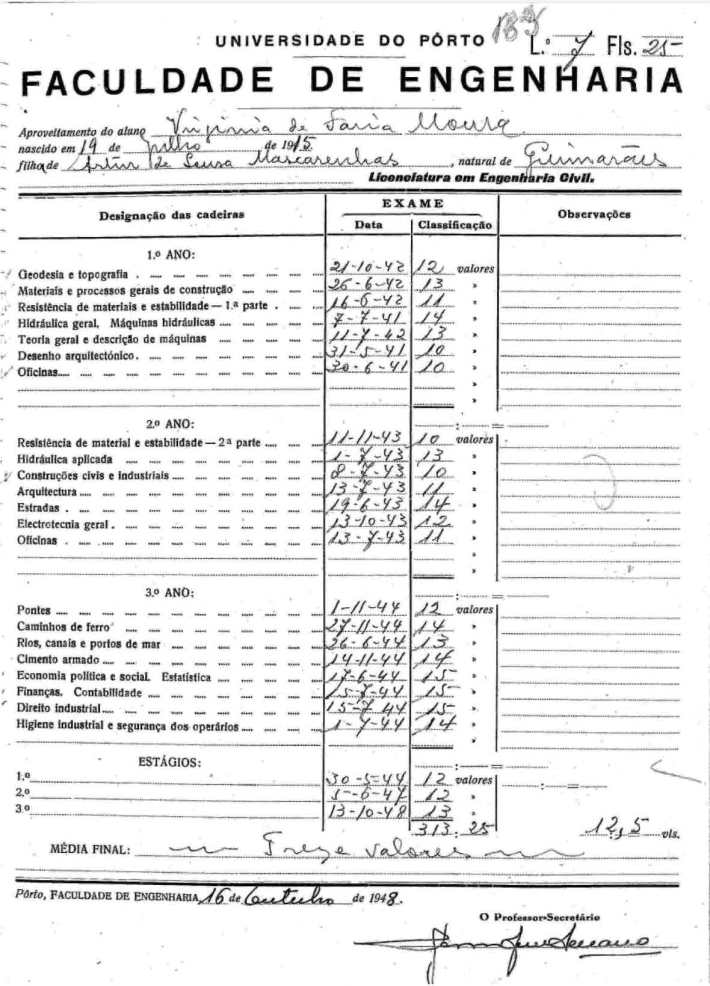 185
UNIVERSIDADE DO PÔRTO L.º 7 Fls. 25-
FACULDADE DE ENGENHARIA
Aproveitamento do aluno Virginia de Faria Moura
nascido em 19 de Julho de 1915.
filha de Artur de Sousa Mascarenhas, natural de Guimarães
Licenciatura em Engenharia Civil.
Designação das cadeiras EXAME Observações
Data Classificação
1.º ANO:
Geodesia e topografia 21-10-42 12 valores
Materiais e processos gerais de construção 26-6-42 13 »
Resistência de materiais e estabilidade — 1.ª parte 16-6-42 11 »
Hidráulica geral. Máquinas hidráulicas 7-7-41 14 »
Teoria geral e descrição de máquinas 11-7-42 13 »
Desenho arquitectónico. 31-5-41 10 »
Oficinas 30-6-41 10 »
»
2.º ANO:
Resistência de material e estabilidade — 2ª parte 11-11-43 10 valores
Hidráulica aplicada 1-7-43 13 »
Construções civis e industriais 8-7-43 10 »
Arquitectura 13-7-43 11 »
Estradas 19-6-43 14 »
Electrotecnia geral 13-10-43 12 »
Oficinas 13-7-43 11 »
»
3.º ANO:
Pontes 1-11-44 12 valores
Caminhos de ferro 27-11-44 14 »
Rios, canais e portos de mar 26-6-44 13 »
Cimento armado 14-11-44 14 »
Economia política e social. Estatística 17-6-44 15 »
Finanças. Contabilidade 15-7-44 15 »
Direito industrial 15-7-44 15 »
Higiene industrial e segurança dos operários 1-7-44 14 »
»
ESTÁGIOS:
1.º 30-5-44 12 valores
2.º 5-6-47 12 »
3.º 13-10-48 13 »
313:25 12,5 vls.
MÉDIA FINAL: Treze valores
Pôrto, FACULDADE DE ENGENHARIA, 16 de Outubro de 1948.
O Professor-Secretário